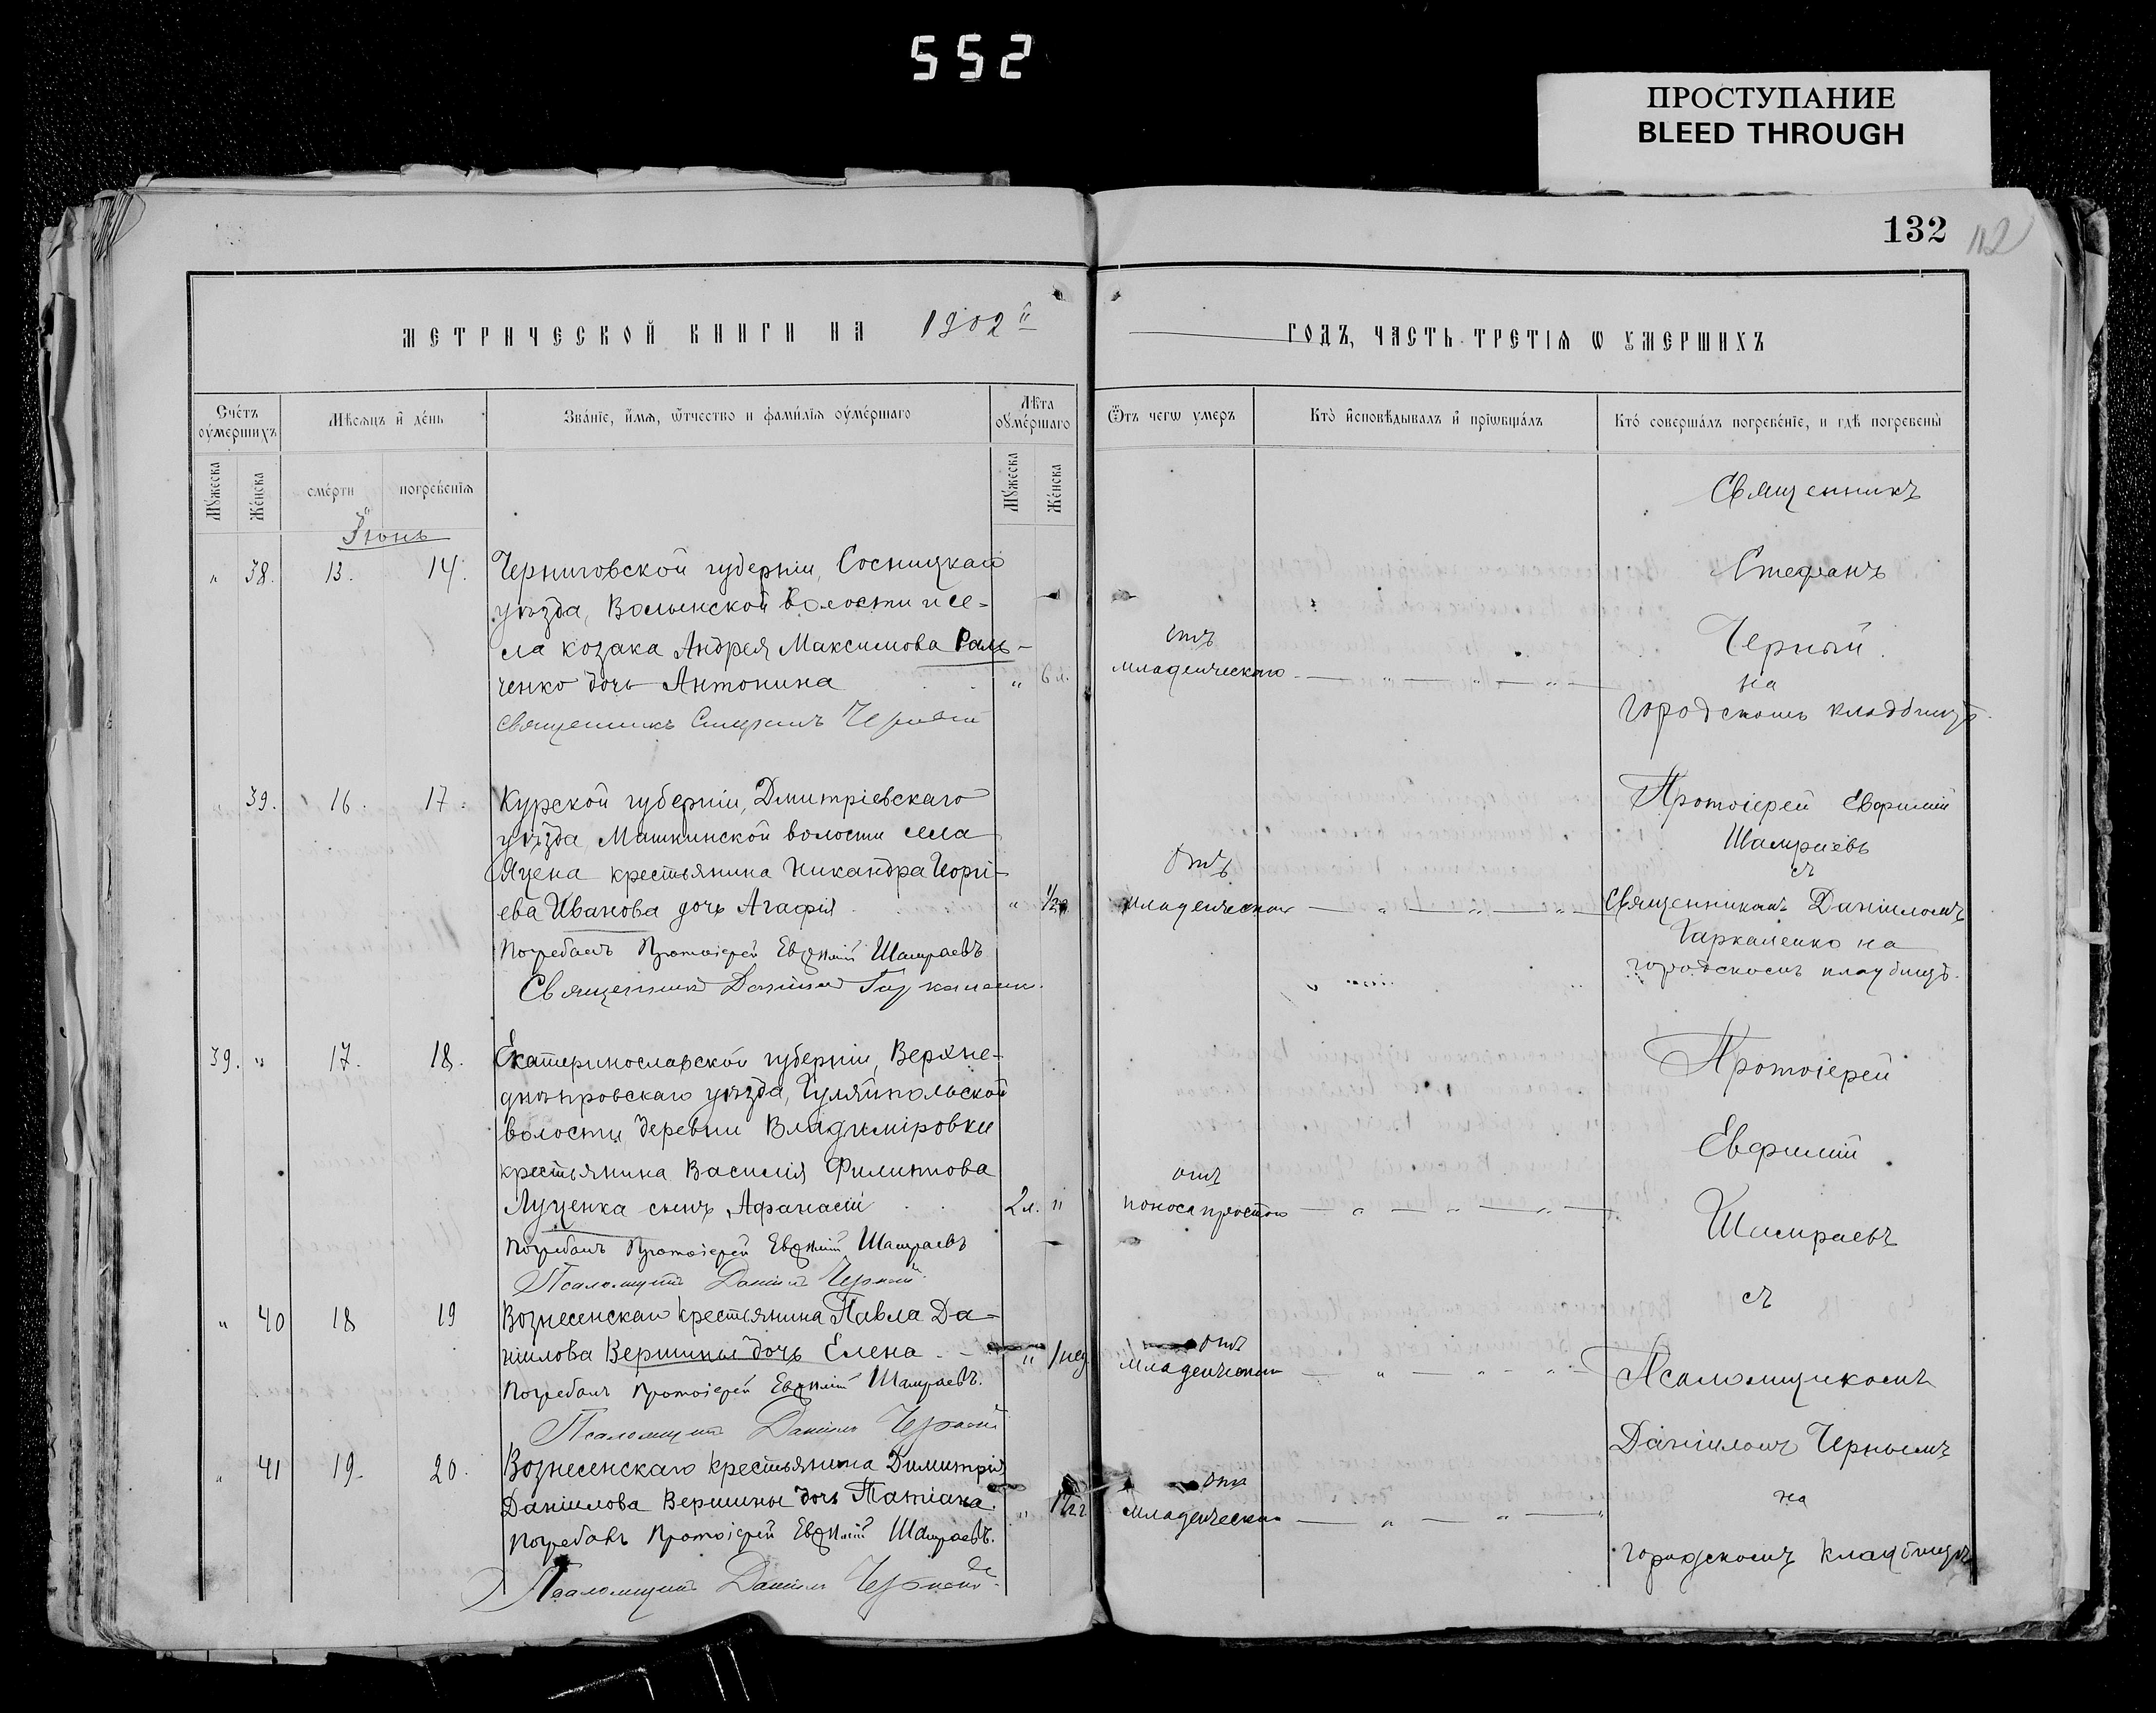 552
ПРОСТУПАНИЕ
BLEED THROUGH
132
112
МЕТРИЧЕСКОЙ КНИГИ НА 1902й
ГОДЪ, ЧАСТЬ ТРЕТІѦ Ѡ ОУМЕРШИХЪ
Счетъ оумершихъ
Мѣсяцъ и день
Званіе, имя, отчество и фамилія оумершаго
Лѣта оумершаго
Отъ чегω умеръ
Кто исповѣдывалъ и пріωбщалъ
Кто совершалъ погребеніе, и гдѣ погребены
Мужеска
Женска
смерти
погребенія
Мужеска
Женска
Іюнь
" 38. 13. 14. Черниговской губерніи, Сосницкаго
уѣзда, Волынской волости и се-
ла козака Андрея Максимова Раль-
ченко дочь Антонина " 6 л.
Священникъ Стефанъ Черный
отъ
младенческаго
Священникъ
Стефанъ
Черный
на
городскомъ кладбищѣ.
39. 16. 17. Курской губерніи, Дмитріевскаго
уѣзда, Машкинской волости села
Яцена крестьянина Никандра Георгі-
ева Иванова дочь Агафія "
Погребалъ Протоіерей Евѳимій Шамраевъ
Священникъ Даніилъ Гаркаленко
Отъ
младенческаго
Протоіерей Евфимій
Шамраевъ
съ
Священникомъ Даніиломъ
Гаркаленко на
городскомъ кладбищѣ.
39. " 17. 18. Екатеринославской губерніи, Верхне-
днѣпровскаго уѣзда, Гуляйпольской
волости деревни Владиміровки
крестьянина Василія Филиппова
Луценка сынъ Афанасій 2 л. "
Погребалъ Протоіерей Евѳимій Шамраевъ
Псаломщикъ Даніилъ Черный
отъ
поноса простого
Протоіерей
Евфимій
Шамраевъ
съ
Псаломщикомъ
Даніиломъ Чернымъ
на
городскомъ кладбищѣ
" 40 18 19 Вознесенскаго крестьянина Павла Да-
ніилова Вершины дочь Елена " 1 нед
Погребалъ Протоіерей Евѳимій Шамраевъ.
Псаломщикъ Даніилъ Черный
отъ
младенческаго
" 41 19. 20. Вознесенскаго крестьянина Димитрія
Даніилова Вершины дочь Татіана. "
Погребалъ Протоіерей Евѳимій Шамраевъ.
Псаломщикъ Даніилъ Черный
отъ
младенческаго